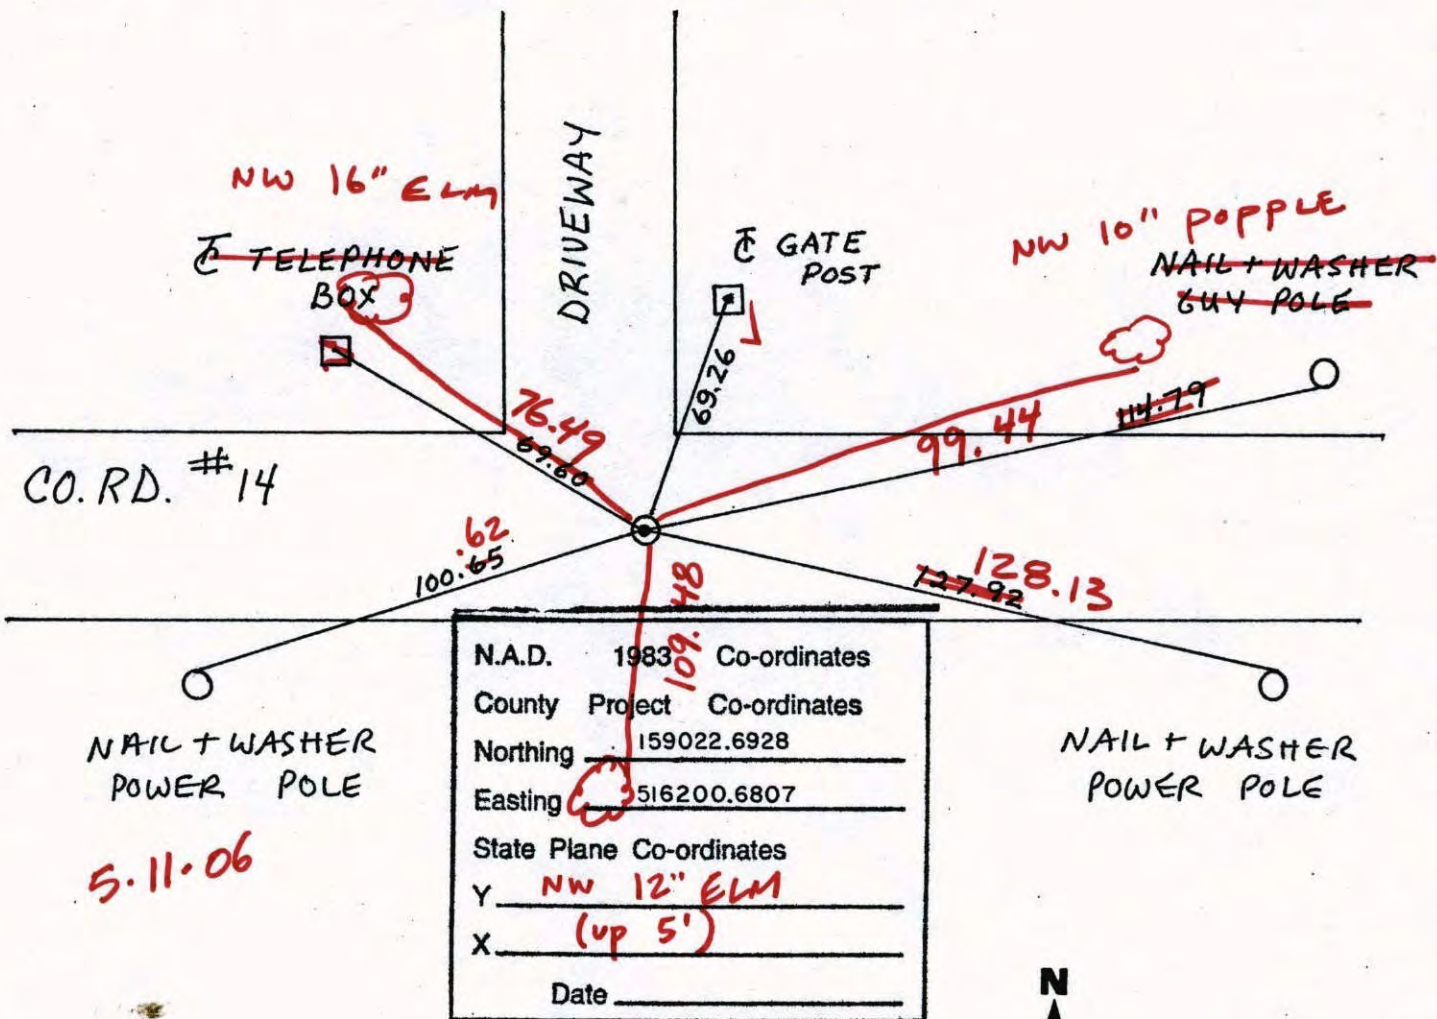 NW 16" ELM
℄ TELEPHONE
BOX
DRIVEWAY
℄ GATE
POST
NW 10" POPPLE
NAIL + WASHER
GUY POLE
76.49
69.60
69.26
99.44
114.79
CO. RD. #14
.62
100.65
128.13
127.92
109.48
NAIL + WASHER
POWER POLE
NAIL + WASHER
POWER POLE
5.11.06
N.A.D. 1983 Co-ordinates
County Project Co-ordinates
Northing 159022.6928
Easting 516200.6807
State Plane Co-ordinates
Y NW 12" ELM
X (up 5')
Date
N